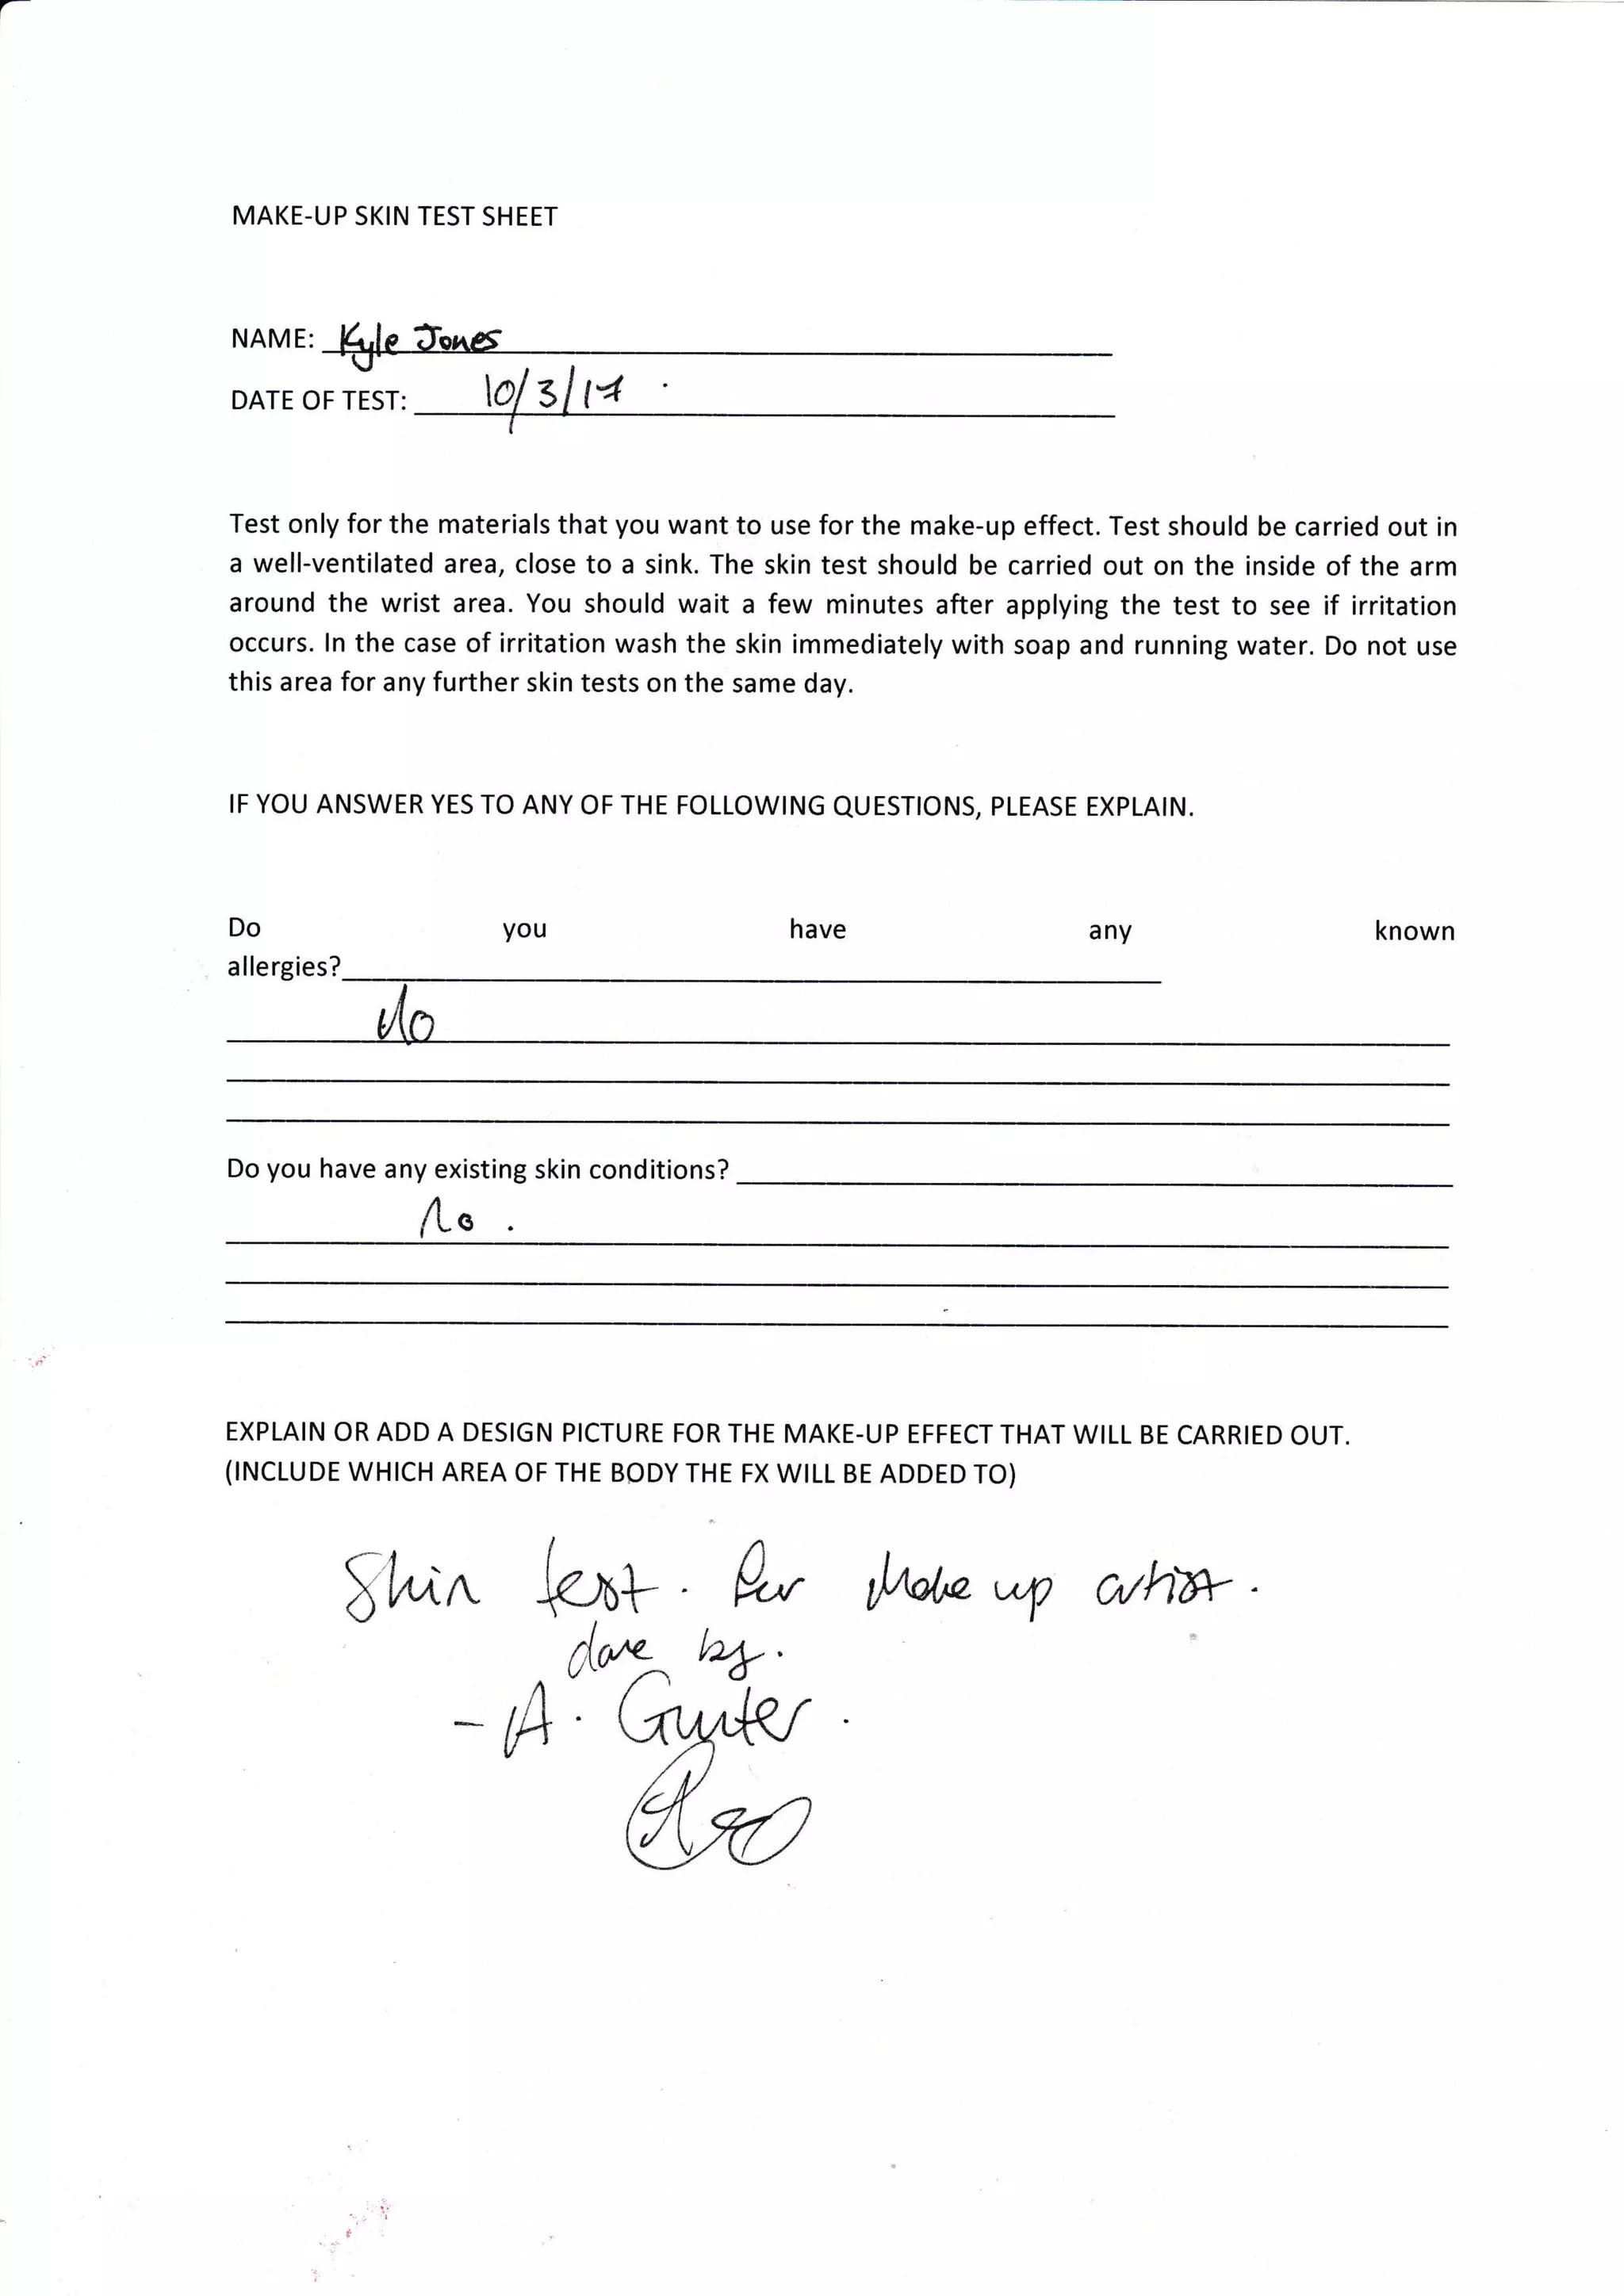 MAKE-UP SKIN TEST SHEET
NAME: Kyle Jones
DATE OF TEST: 10/3/17
Test only for the materials that you want to use for the make-up effect. Test should be carried out in
a well-ventilated area, close to a sink. The skin test should be carried out on the inside of the arm
around the wrist area. You should wait a few minutes after applying the test to see if irritation
occurs. In the case of irritation wash the skin immediately with soap and running water. Do not use
this area for any further skin tests on the same day.
IF YOU ANSWER YES TO ANY OF THE FOLLOWING QUESTIONS, PLEASE EXPLAIN.
Do you have any known
allergies?
No
Do you have any existing skin conditions?
No.
EXPLAIN OR ADD A DESIGN PICTURE FOR THE MAKE-UP EFFECT THAT WILL BE CARRIED OUT.
(INCLUDE WHICH AREA OF THE BODY THE FX WILL BE ADDED TO)
Skin test. For Make up artist.
done by.
- A. Gunter.